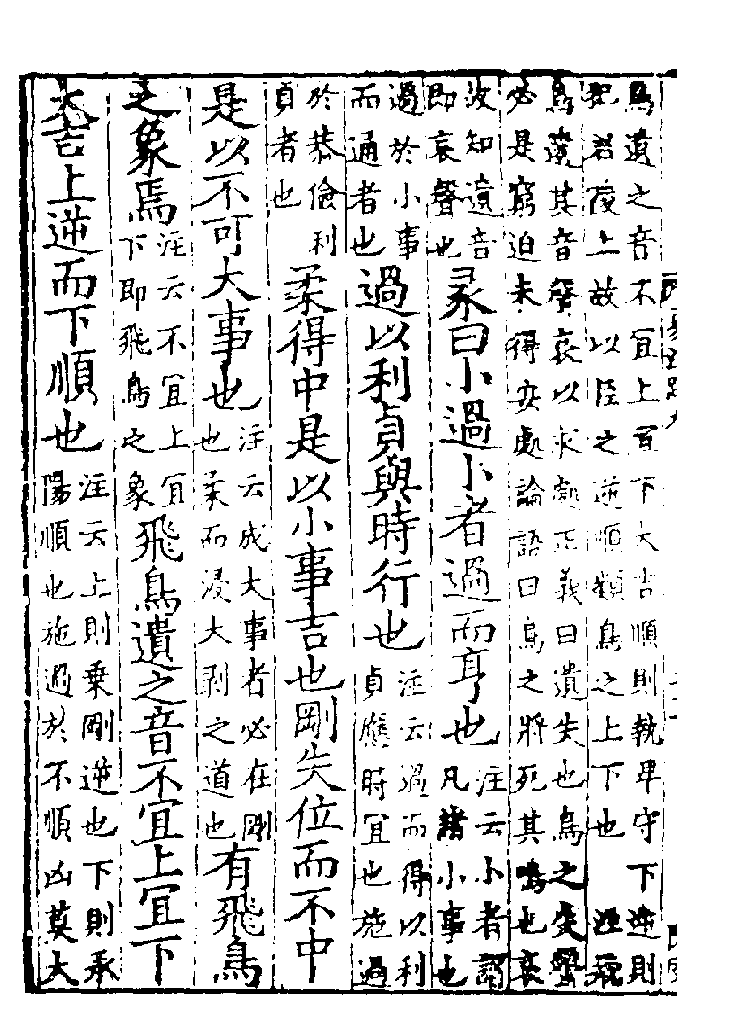 鳥遺之音不宜上宜下大吉順則執卑守下逆則
犯君陵上故以臣之逆順類鳥之上下也　注飛
鳥遺其音聲哀以求處正義曰遺失也鳥之失聲
必是窮迫未得安處論語曰鳥之將死其鳴也哀
故知遺音
即哀聲也
彖曰小過小者過而亨也
注云小者謂
凡諸小事也
過於小事
而通者也
過以利貞與時行也
注云過而得以利
貞應時宜也施過
於恭儉利
貞者也
柔得中是以小事吉也剛失位而不中
是以不可大事也
注云成大事者必在剛
也柔而浸大剥之道也
有飛鳥
之象焉
注云不宜上宜
下即飛鳥之象
飛鳥遺之音不宜上宜下
大吉上逆而下順也
注云上則乗剛逆也下則承
陽順也施過於不順凶莫大